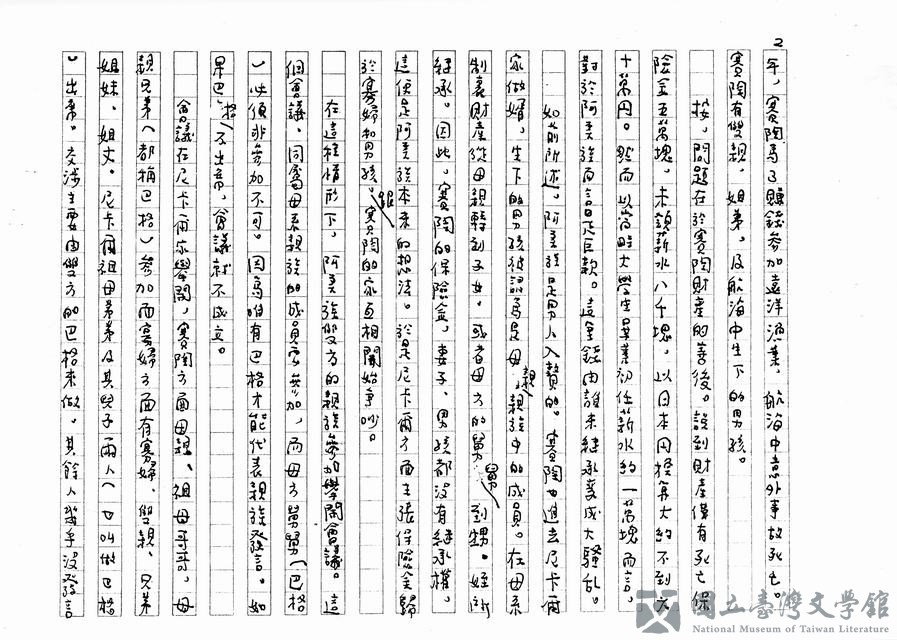 2
年,賽陶為了賺錢參加遠洋漁業,航海中意外事故死亡。
賽陶有雙親,姐弟,及航海中生下的男孩。
按,問題在於賽陶財產的善後。說到財產僅有死亡保
險金五萬塊,未領薪水八千塊,以日本円換算大約不到六
十萬円。然而以當時大學生畢業初任薪水約一萬塊而言,
對於阿美族而言是巨款。這筆錢由誰來繼承變成大騷乱。
如前所述,阿美族是男人入贅的。賽陶也進去尼卡爾
家做婿,生下的男孩被認為是母親親族中的成員。在母系
制裏財產從母親轉到子女,或者母方的舅舅到甥、姪所
繼承。因此,賽陶的保險金,妻子、男孩都沒有繼承權。
這便是阿美族本來的想法。於是尼卡爾方面主張保險金歸
於寡婦和男孩,跟賽陶的家互相開始爭吵。
在這種情形下,阿美族雙方的親族參加舉開會議。這
個會議,同屬母系親族的成員要參加,而母方舅舅(巴格
)此須非參加不可。因為唯有巴格才能代表親族發言。如
果巴格不出席,會議就不成立。
會議在尼卡爾家舉開,賽陶方面母親、祖母哥哥,母
親兄弟(都稱巴格)參加而寡婦方面有寡婦、雙親、兄弟
姐妹、姐丈。尼卡爾祖母弟弟及其兒子兩人(也叫做巴格
)出席。交涉主要由雙方的巴格來做,其餘人幾乎沒發言
國立臺灣文學館
National Museum of Taiwan Literature